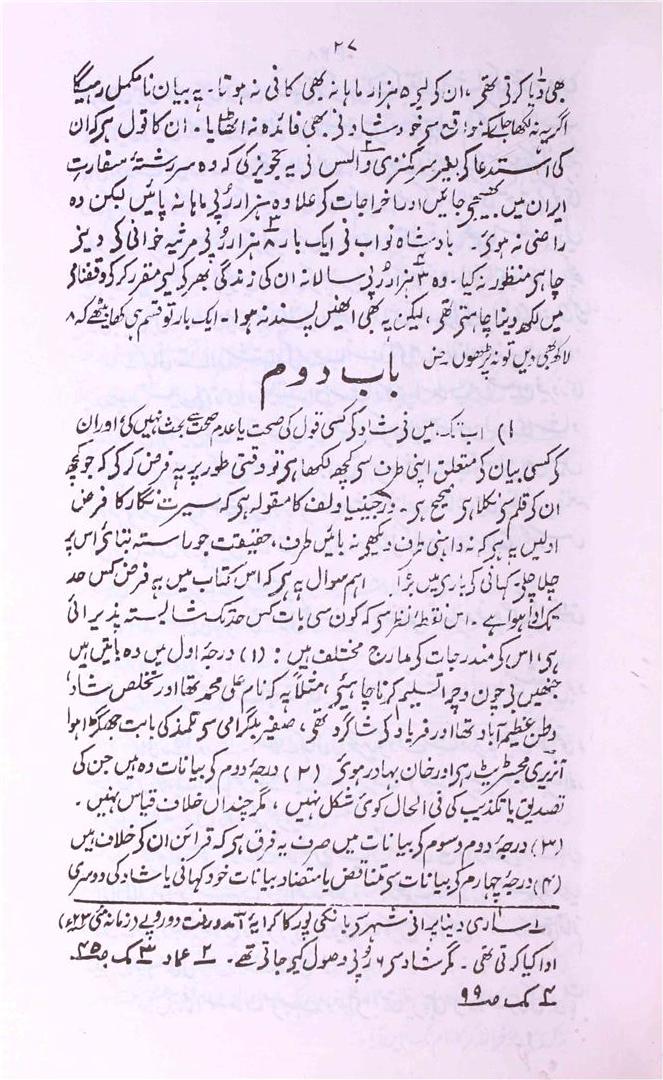 ۲۷
بھی دیا کرتی تھی، ان کے لیے ۵ ہزار ماہانہ بھی کافی نہ ہوتا۔ یہ بیان نامکمل رہیگا
اگر یہ نہ لکھا جائے کہ مواقع سے خود شاد نے بھی فائدہ نہ اٹھایا۔ ان کا قول ہے کہ ان
کی استدعا کے بغیر سر کنزی والس نے یہ تجویز کی کہ وہ سر رشتۂ سفارت
ایران میں بھیجے جائیں اور اخراجات کے علاوہ ہزار رُپے ماہانہ پائیں لیکن وہ
راضی نہ ہوئے۔ بادشاہ نواب نے ایک بار ۸ ہزار رُپے مرثیہ خوانی کے دینے
چاہے منظور نہ کیا۔ وہ ۳ ہزار رُپے سالانہ ان کی زندگی بھر کے لیے مقرر کر کے وقفنامے
میں لکھ دینا چاہتے تھے، لیکن یہ بھی انھیں پسند نہ ہوا۔ ایک بار تو قسم ہی کھا بیٹھے کہ ۸
لاکھ بھی دیں تو نہ پڑھوں
باب دوم
۱) اب تک میں نے شاد کے کسی قول کی صحت یا عدم صحت سے بحث نہیں کی اور ان
کے کسی بیان کے متعلق اپنی طرف سے کچھ لکھا ہے تو وقتی طور پر یہ فرض کر کے کہ جو کچھ
ان کے قلم سے نکلا ہے صحیح ہے۔ ورجینیا ولف کا مقولہ ہے کہ سیرت نگار کا فرض
اولیں یہ ہے کہ نہ داہنی طرف دیکھے نہ بائیں طرف، حقیقت جو راستہ بتائے اس پر
چلا چلے۔ کہانی کے بارے میں بڑا اہم سوال یہ ہے کہ اس کتاب میں یہ فرض کس حد
تک ادا ہوا ہے۔ اس نقطۂ نظر سے کہ کون سی بات کس حد تک شایستہ پذیرائی
ہے، اس کے مندرجات کے مدارج مختلف ہیں: (۱) درجۂ اول میں وہ باتیں ہیں
جنھیں بے چون و چرا تسلیم کرنا چاہیے، مثلاً یہ کہ نام علی محمد تھا اور تخلص شاد،
وطن عظیم آباد تھا اور فریاد کے شاگرد تھے، صفیر بلگرامی سے تلمذ کی بابت جھگڑا ہوا
آنریری مجسٹریٹ رہے اور خان بہادر ہوئے (۲) درجۂ دوم کے بیانات وہ ہیں جن کی
تصدیق یا تکذیب کی فی الحال کوئی شکل نہیں، مگر چنداں خلاف قیاس نہیں۔
(۳) درجۂ دوم و سوم کے بیانات میں صرف یہ فرق ہے کہ قرائن ان کے خلاف ہیں
(۴) درجۂ چہارم کے بیانات سے متناقض یا متضاد بیانات خود کہانی یا شاد کی دوسری
۱ ساری دینا پرانے شہر سے بانکی پور کا کرایہ آمد و رفت دو روپے (زمانہ مئی ۲۳ء)
ادا کیا کرتی تھی۔ مگر شاد سے ۶ رُپے وصول کیے جاتے تھے۔ ۲ عماد ۳ مک ص ۴۵
۴ مک ص ۹۹